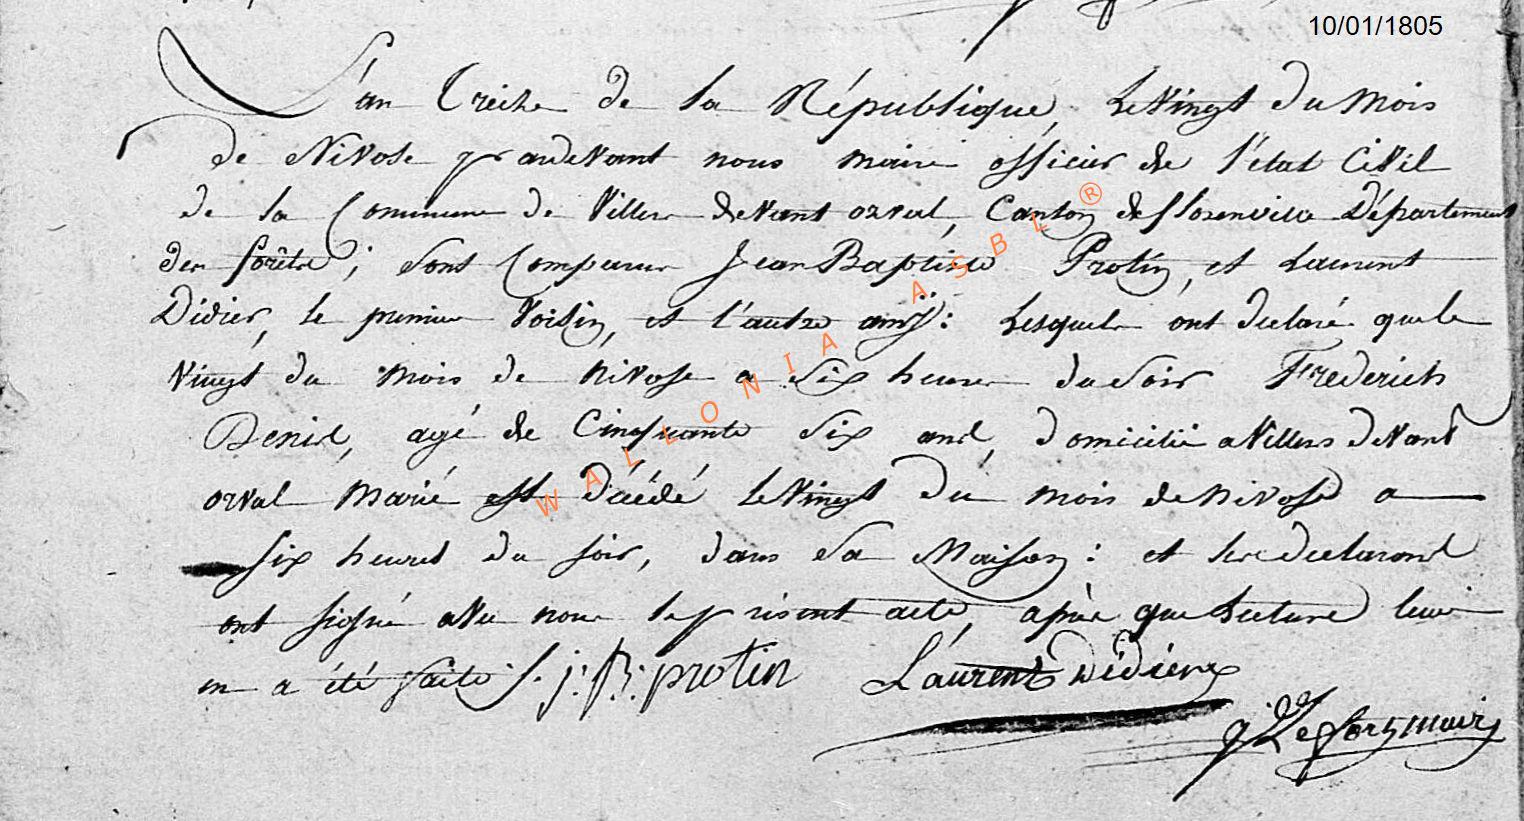 10/01/1805
L'an Treize de la République, le vingt du mois
de Nivose par devant nous maire officier de l'état Civil
de la Commune de Villers devant orval, Canton de florenville Département
des forêts; sont Comparus Jean Baptiste Protin, et Laurent
Didier, le premier Voisin, et l'autre amÿ: Lesquels ont declaré que le
vingt du mois de nivose a six heures du soir Frederich
Denis, agé de Cinquante six ans, domicilié a Villers devant
orval marié est décédé le vingt du mois de nivose a
six heures du soir, dans sa Maison: et les declarans
ont signé avec nous le présent acte, après que Lecture leur
en a été faite J. B: protin Laurent Didier
maire
WALLONIA ASBL ®